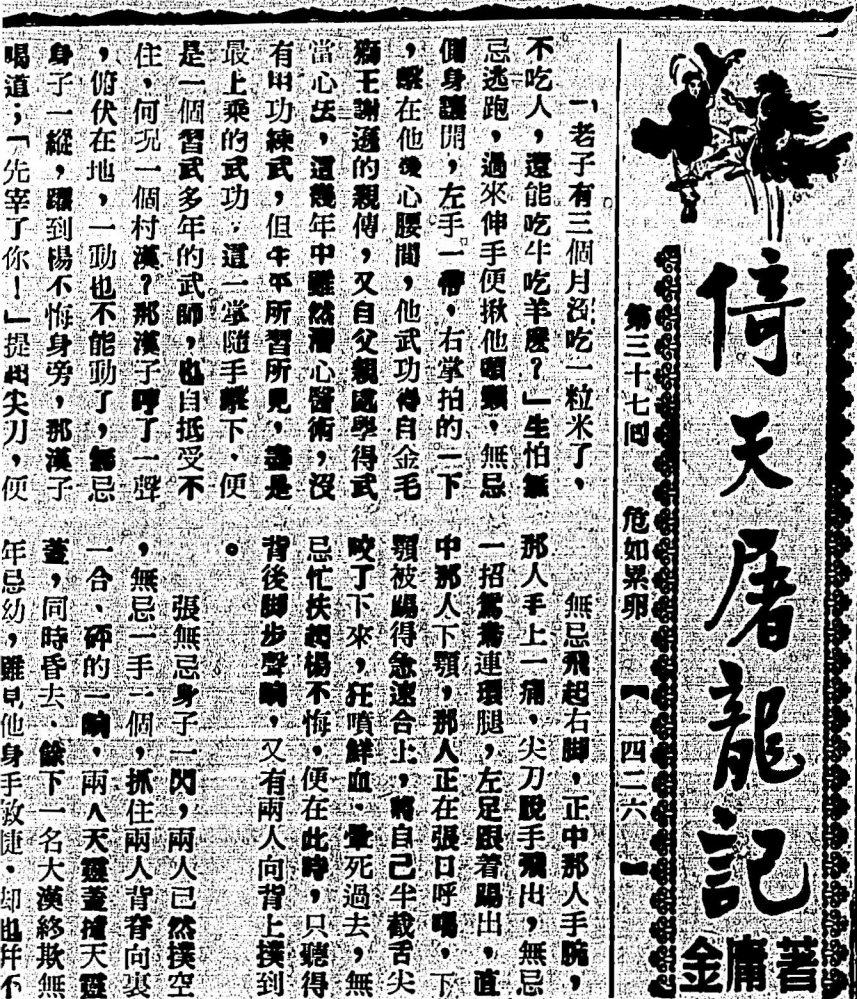 倚天屠龍記
金庸著
第三十七囘　危如累卵　【四二六】
「老子有三個月沒吃一粒米了，
不吃人，還能吃牛吃羊麼？」生怕無
忌逃跑，過來伸手便揪他頭頸，無忌
側身讓開，左手一帶，右掌拍的一下
，擊在他後心腰間，他武功得自金毛
獅王謝遜的親傳，又自父親處學得武
當心法，這幾年中雖然潛心醫術，沒
有用功練武，但生平所習所見，盡是
最上乘的武功，這一掌隨手擊下，便
是一個習武多年的武師，也自抵受不
住，何況一個村漢？那漢子哼了一聲
，俯伏在地，一動也不能動了，無忌
身子一縱，躍到楊不悔身旁，那漢子
喝道；「先宰了你！」提起尖刀，便
無忌飛起右脚，正中那人手腕，
那人手上一痛，尖刀脫手飛出，無忌
一招鴛鴦連環腿，左足跟着踢出，直
中那人下顎，那人正在張口呼喝，下
顎被踢得急速合上，將自己半截舌尖
咬了下來，狂噴鮮血，暈死過去，無
忌忙扶起楊不悔，便在此時，只聽得
背後脚步聲響，又有兩人向背上撲到
。
張無忌身子一閃，兩人已然撲空
，無忌一手一個，抓住兩人背脊向裏
一合，砰的一響，兩人天靈蓋撞天靈
蓋，同時昏去，餘下一名大漢終欺無
年忌幼，雖見他身手敏捷，却也幷不